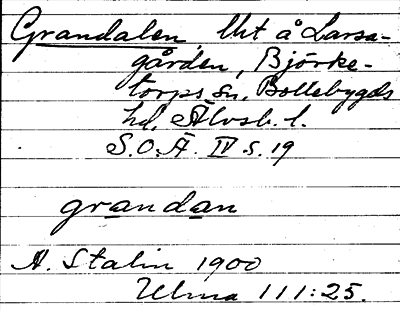 Grandalen, lht å Larsa-
gården, Björke-
torps sn, Bollebygds
hd, Älvsb. l.
S.O.Ä. IV s. 19
grandan
A. Stalin 1900
Ulma 111:25.